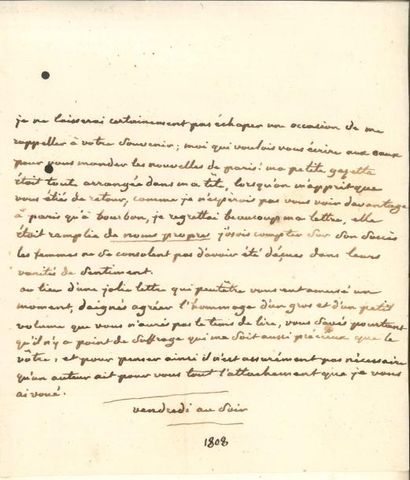 je ne laisserai certainement pas échaper une occasion de me
rappeller à votre souvenir; moi qui voulois vous écrire aux eaux
pour vous mander les nouvelles de paris! ma petite gazette
était toute arrangée dans ma tête, lorsqu'on m'apprit que
vous étiés de retour, comme je n'espérois pas vous voir davantage
à paris qu'à bourbon, je regrettai beaucoup ma lettre, elle
étoit remplie de noms propres j'osois compter sur son succès
les femmes ne se consolent pas d'avoir été déçues dans leurs
vanité de sentiment.
au lieu d'une jolie lettre qui peutêtre vous eut amusé un
moment, daignés agréer l'hommage d'un gros et d'un petit
volume que vous n'aurés pas le tems de lire, vous savés pourtant
qu'il n'y a point de suffrage qui me soit aussi précieux que le
votre, et pour penser ainsi il n'est assurément pas nécessaire
qu'un auteur ait pour vous tout l'attachement que je vous
ai voué.
vendredi au soir
1808